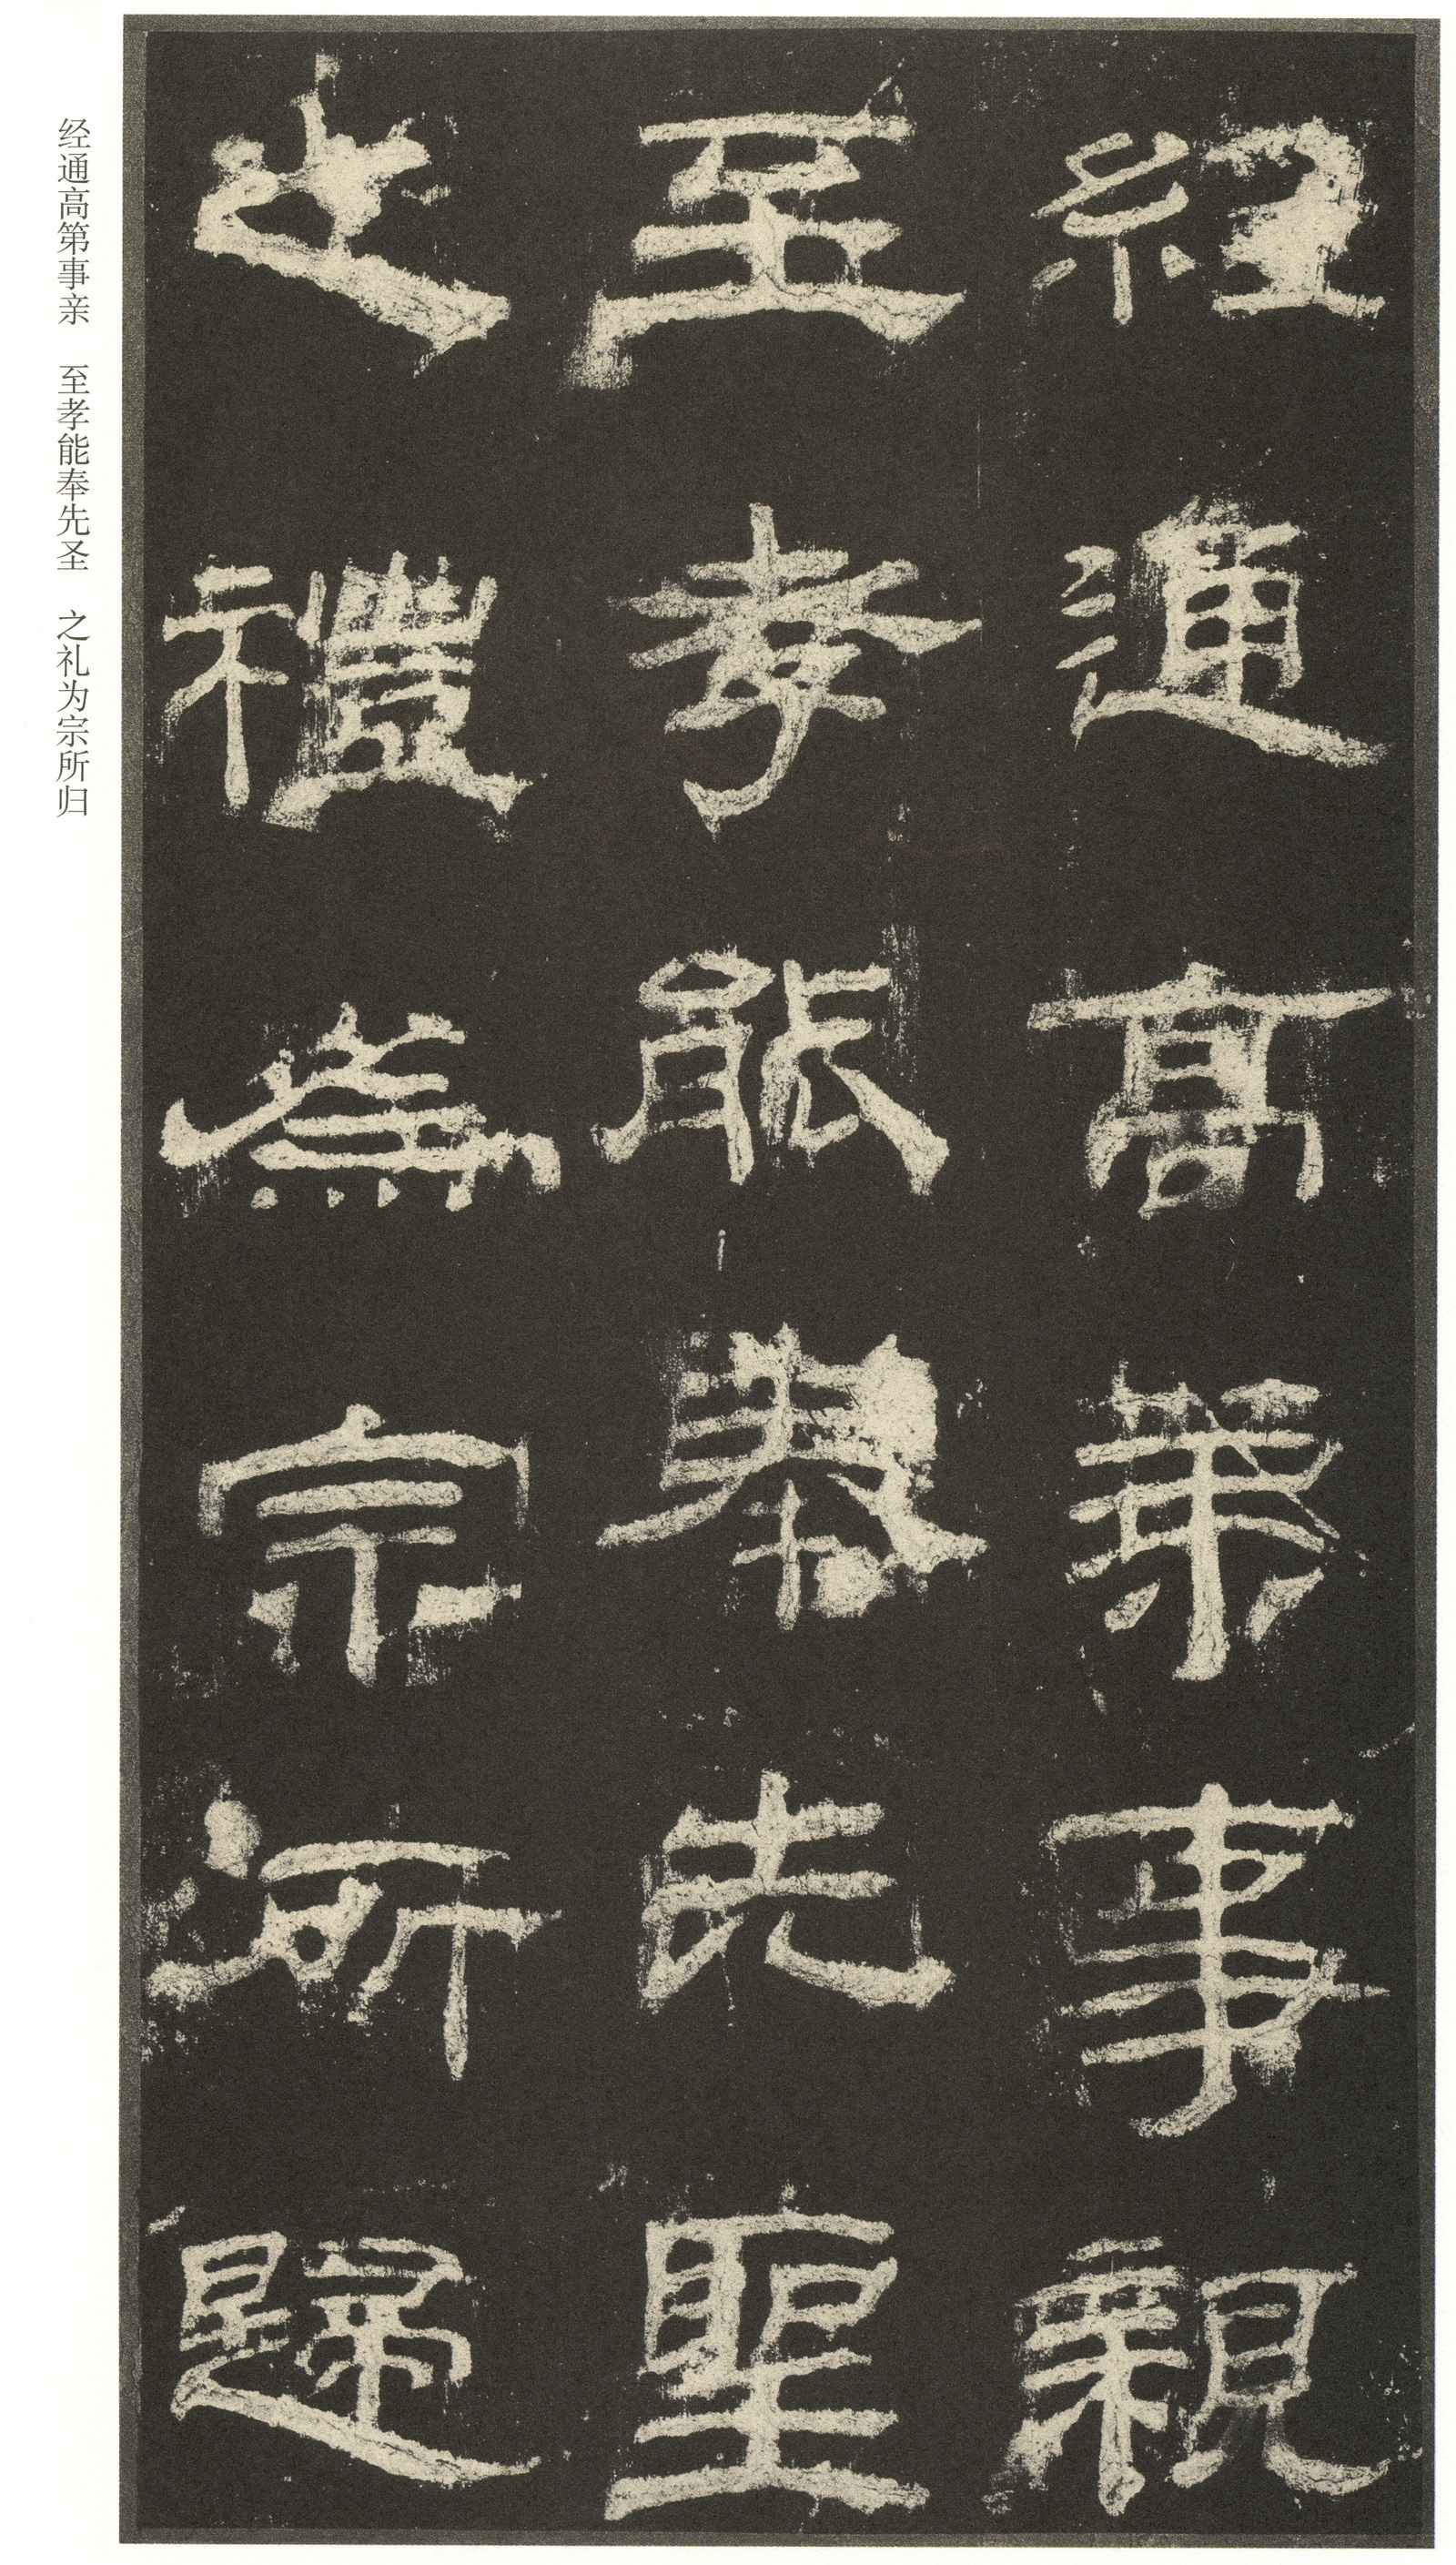 經通高第事親
至孝能奉先聖
之禮為宗所歸
经通高第事亲　至孝能奉先圣　之礼为宗所归